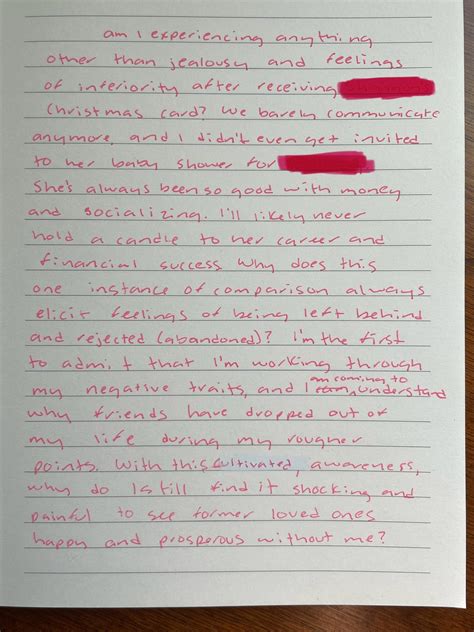 am I experiencing anything
other than jealousy and feelings
of inferiority after receiving
Christmas card? We barely communicate
anymore, and I didn't even get invited
to her baby shower for
She's always been so good with money
and socializing. I'll likely never
hold a candle to her career and
financial success why does this
one instance of comparison always
elicit feelings of being left behind
and rejected (abandoned)? I'm the first
to admit that I'm working through
my negative traits, and I am coming to understand
why friends have dropped out of
my life during my rougher
points. With this cultivated, awareness,
why do I still find it shocking and
painful to see former loved ones
happy and prosperous without me?